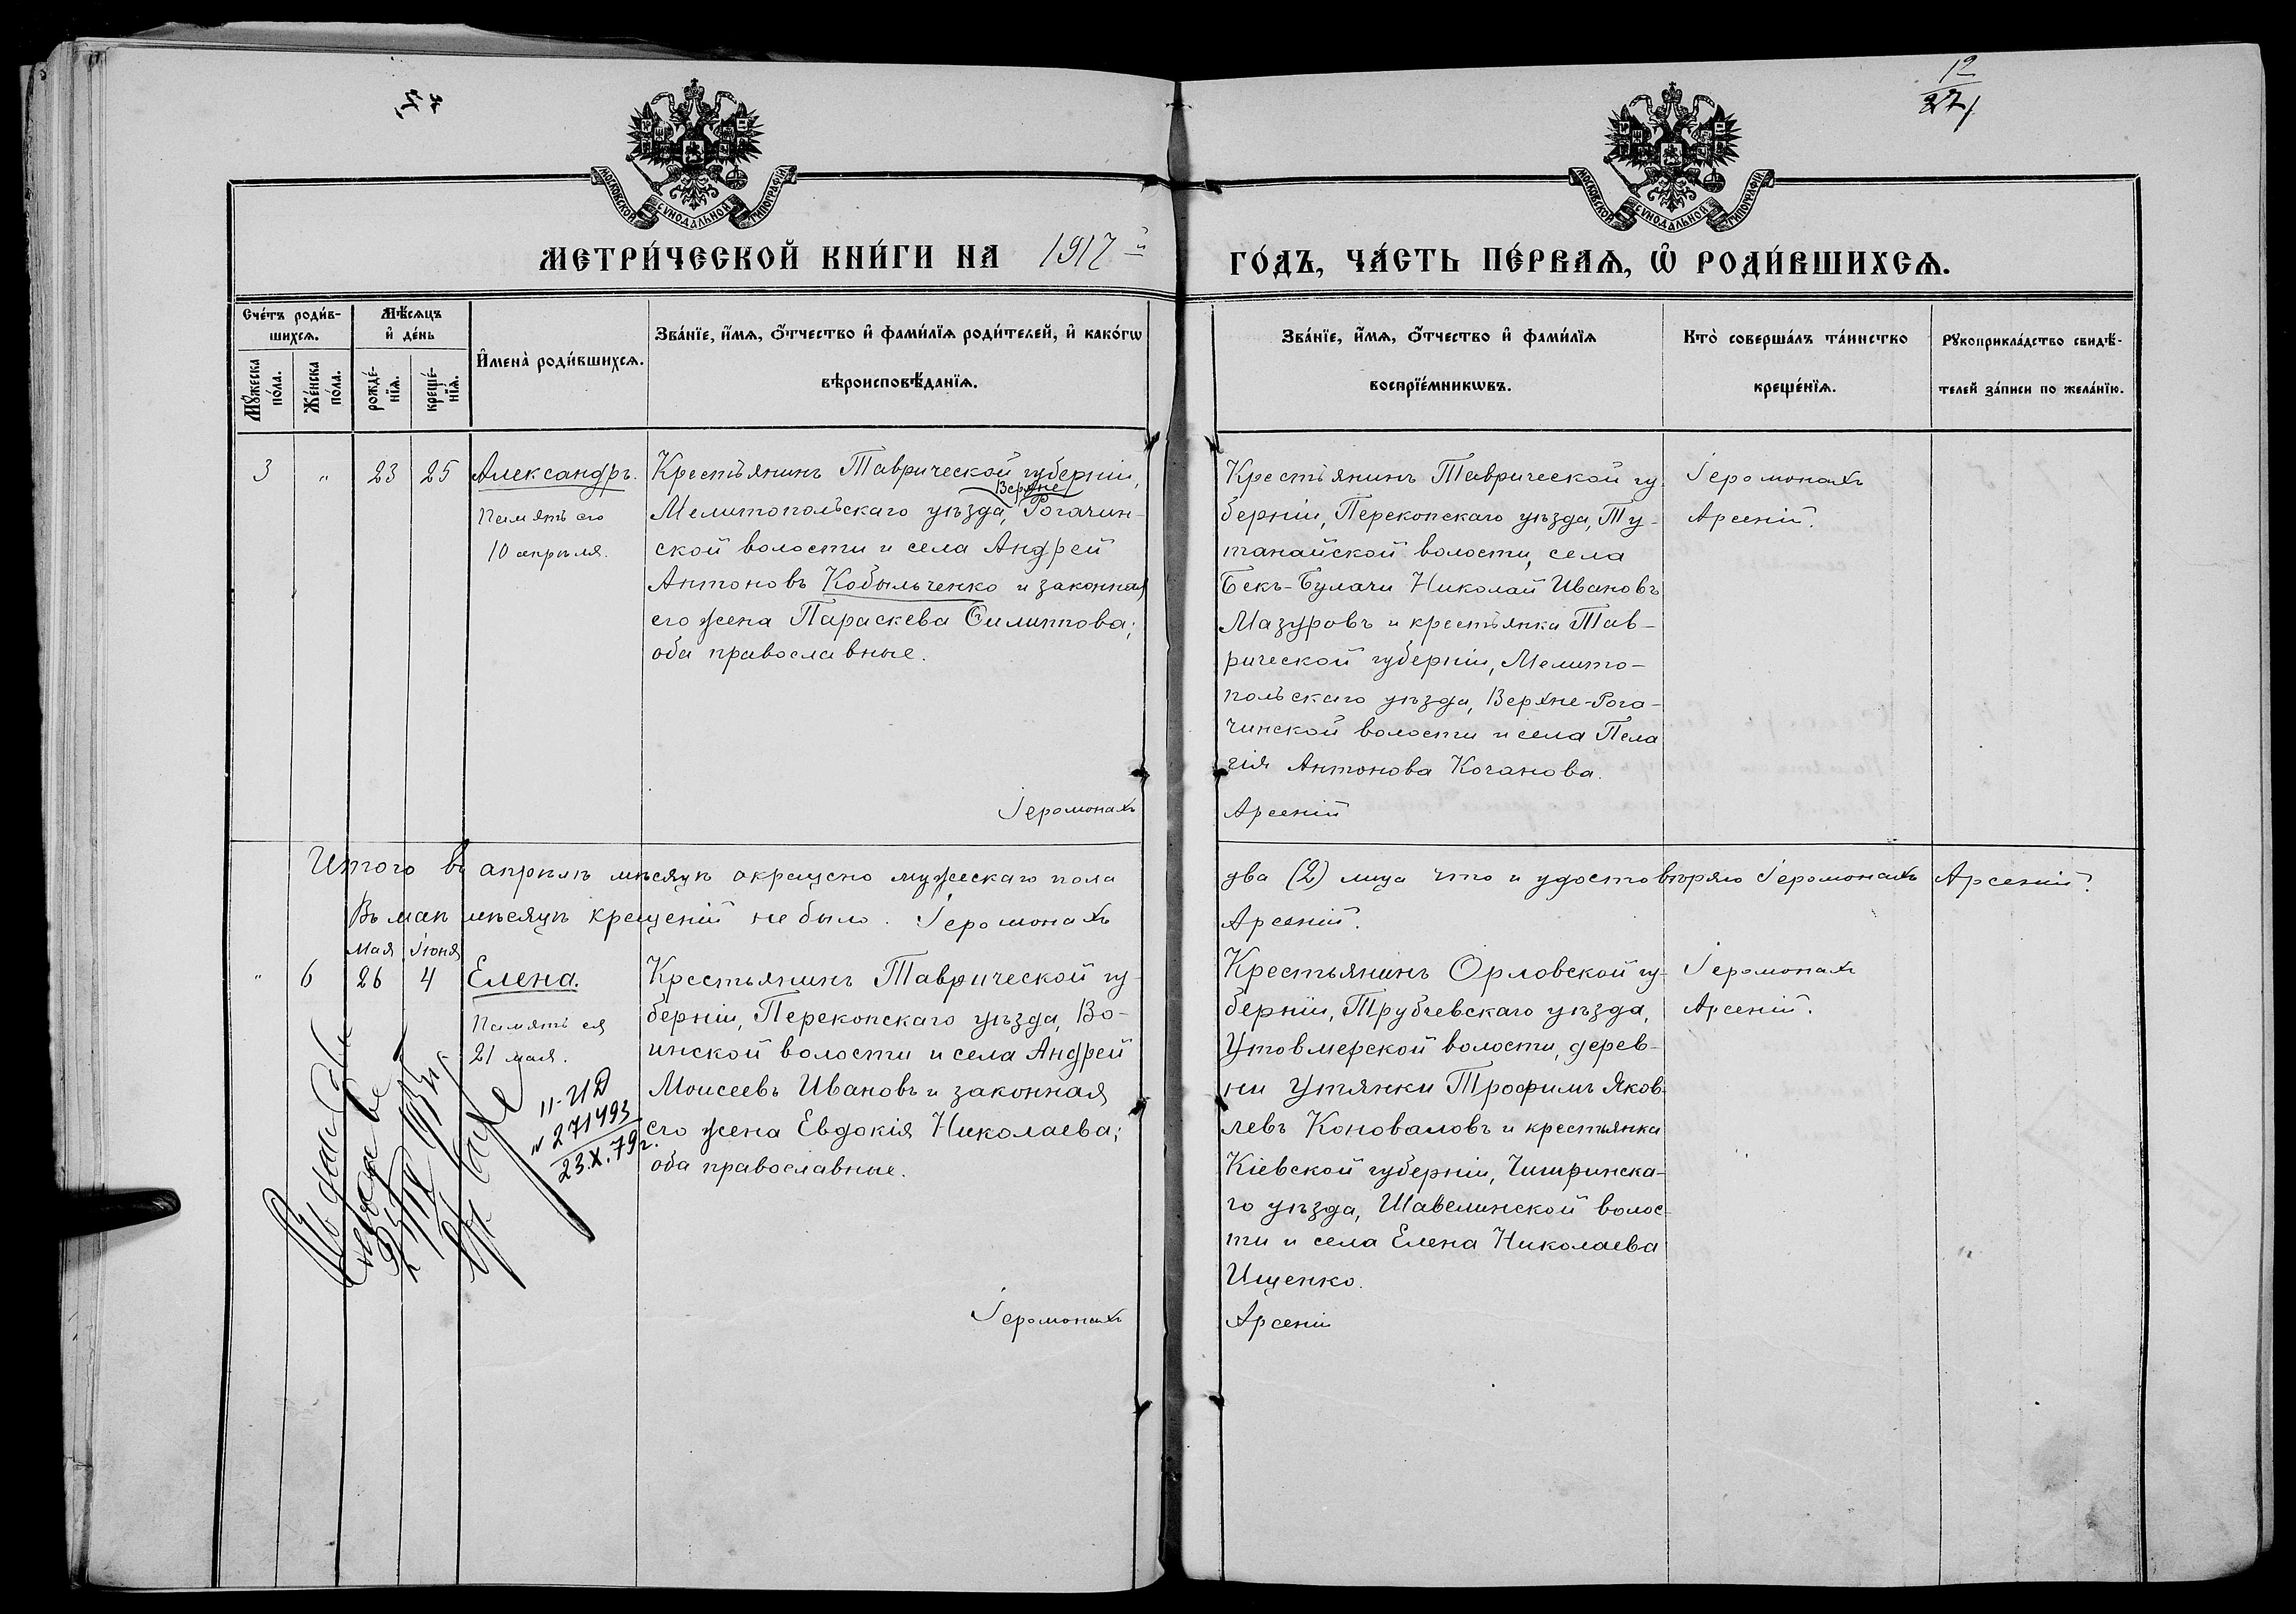 12
27
МОСКОВСКОЙ СѴНОДАЛЬНОЙ ТИПОГРАФІИ
МОСКОВСКОЙ СѴНОДАЛЬНОЙ ТИПОГРАФІИ
МЕТРИ́ЧЕСКОЙ КНИ́ГИ НА 1917й
ГО́ДЪ, ЧА́СТЬ ПЕ́РВАѦ, Ѡ РОДИ́ВШИХСѦ.
Сче́тъ роди́в-
шихсѧ.
Мꙋ́жеска
по́ла.
Же́нска
по́ла.
Мѣ́сѧцъ
и҆ де́нь
рожде́-
нїѧ.
креще́-
нїѧ.
И҆мена̀ роди́вшихсѧ.
Зва́нїе, и҆́мѧ, ѻ҆́тчество и҆ фами́лїѧ роди́телей, и҆ како́гѡ
вѣроисповѣ́данїѧ.
Зва́нїе, и҆́мѧ, ѻ҆́тчество и҆ фами́лїѧ
воспрїе́мникѡвъ.
Кто̀ соверша́лъ та́инство
креще́нїѧ.
Рꙋкоприкла́дство свидѣ́-
телей за́писи по жела́нїю.
3 " 23 25 Александръ.
Память его
10 апрѣля.
Крестьянинъ Таврической губерніи,
Верхне
Мелитопольскаго уѣзда, Рогачин-
ской волости и села Андрей
Антоновъ Кобыльченко и законная
его жена Параскева Филиппова;
оба православные.
Іеромонахъ
Крестьянинъ Таврической гу-
берніи, Перекопскаго уѣзда, Ту-
танайской волости, села
Бекъ-Булачи Николай Ивановъ
Мазуровъ и крестьянка Тав-
рической губерніи, Мелито-
польскаго уѣзда, Верхне-Рога-
чинской волости и села Пела
гія Антонова Коганова.
Арсеній
Іеромонахъ
Арсеній.
Итого въ апрѣлѣ мѣсяцѣ окрещено мужескаго пола
два (2) лица что и удостовѣряю Іеромонахъ Арсеній.
Въ маѣ мѣсяцѣ крещеній не было. Іеромонахъ
Арсеній.
Мая Іюня
" 6 26 4 Елена.
Память ея
21 мая.
II-ИД
№ 271493
23.X.79г.
Крестьянинъ Таврической гу-
берніи, Перекопскаго уѣзда, Во-
инской волости и села Андрей
Моисеевъ Ивановъ и законная
его жена Евдокія Николаева;
оба православные.
Іеромонахъ
Крестьянинъ Орловской гу-
берніи, Трубчевскаго уѣзда,
Утовмерской волости, дерев-
ни Утянки Трофимъ Яков-
левъ Коноваловъ и крестьянка
Кіевской губерніи, Чигринска-
го уѣзда, Шавелинской волос-
ти и села Елена Николаева
Ищенко.
Арсеній
Іеромонахъ
Арсеній.